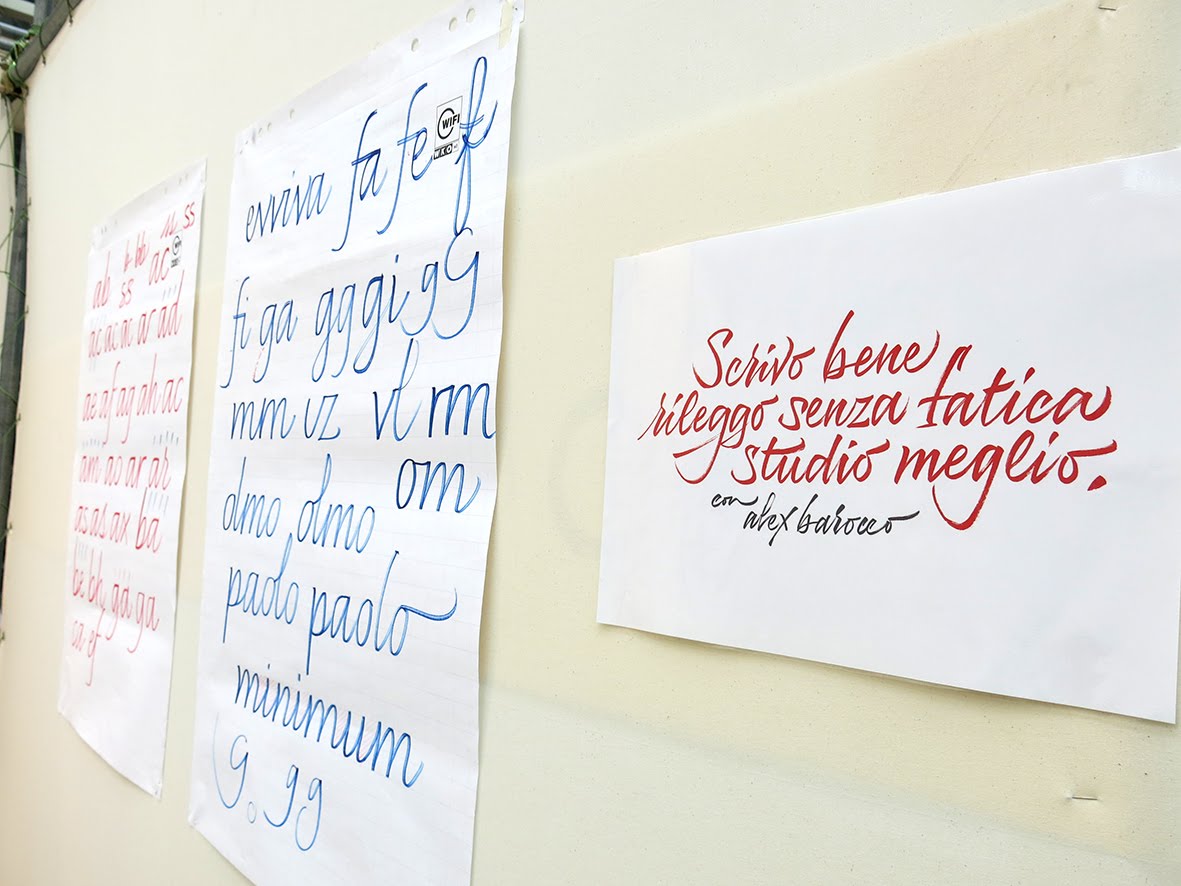 ab bb ss
ss ac
ac ac ac ar ad
ae af ag ah ac
am ao ar ar
as as ax ba
be bh ga ga
ca ef
evviva fa fe f
WIFI
WKO
fi ga gg gi g G
mm vz vl rm
olmo olmo om
paolo paolo
minimum
G. gg
Scrivo bene
rileggo senza fatica
studio meglio.
con
alex barocco